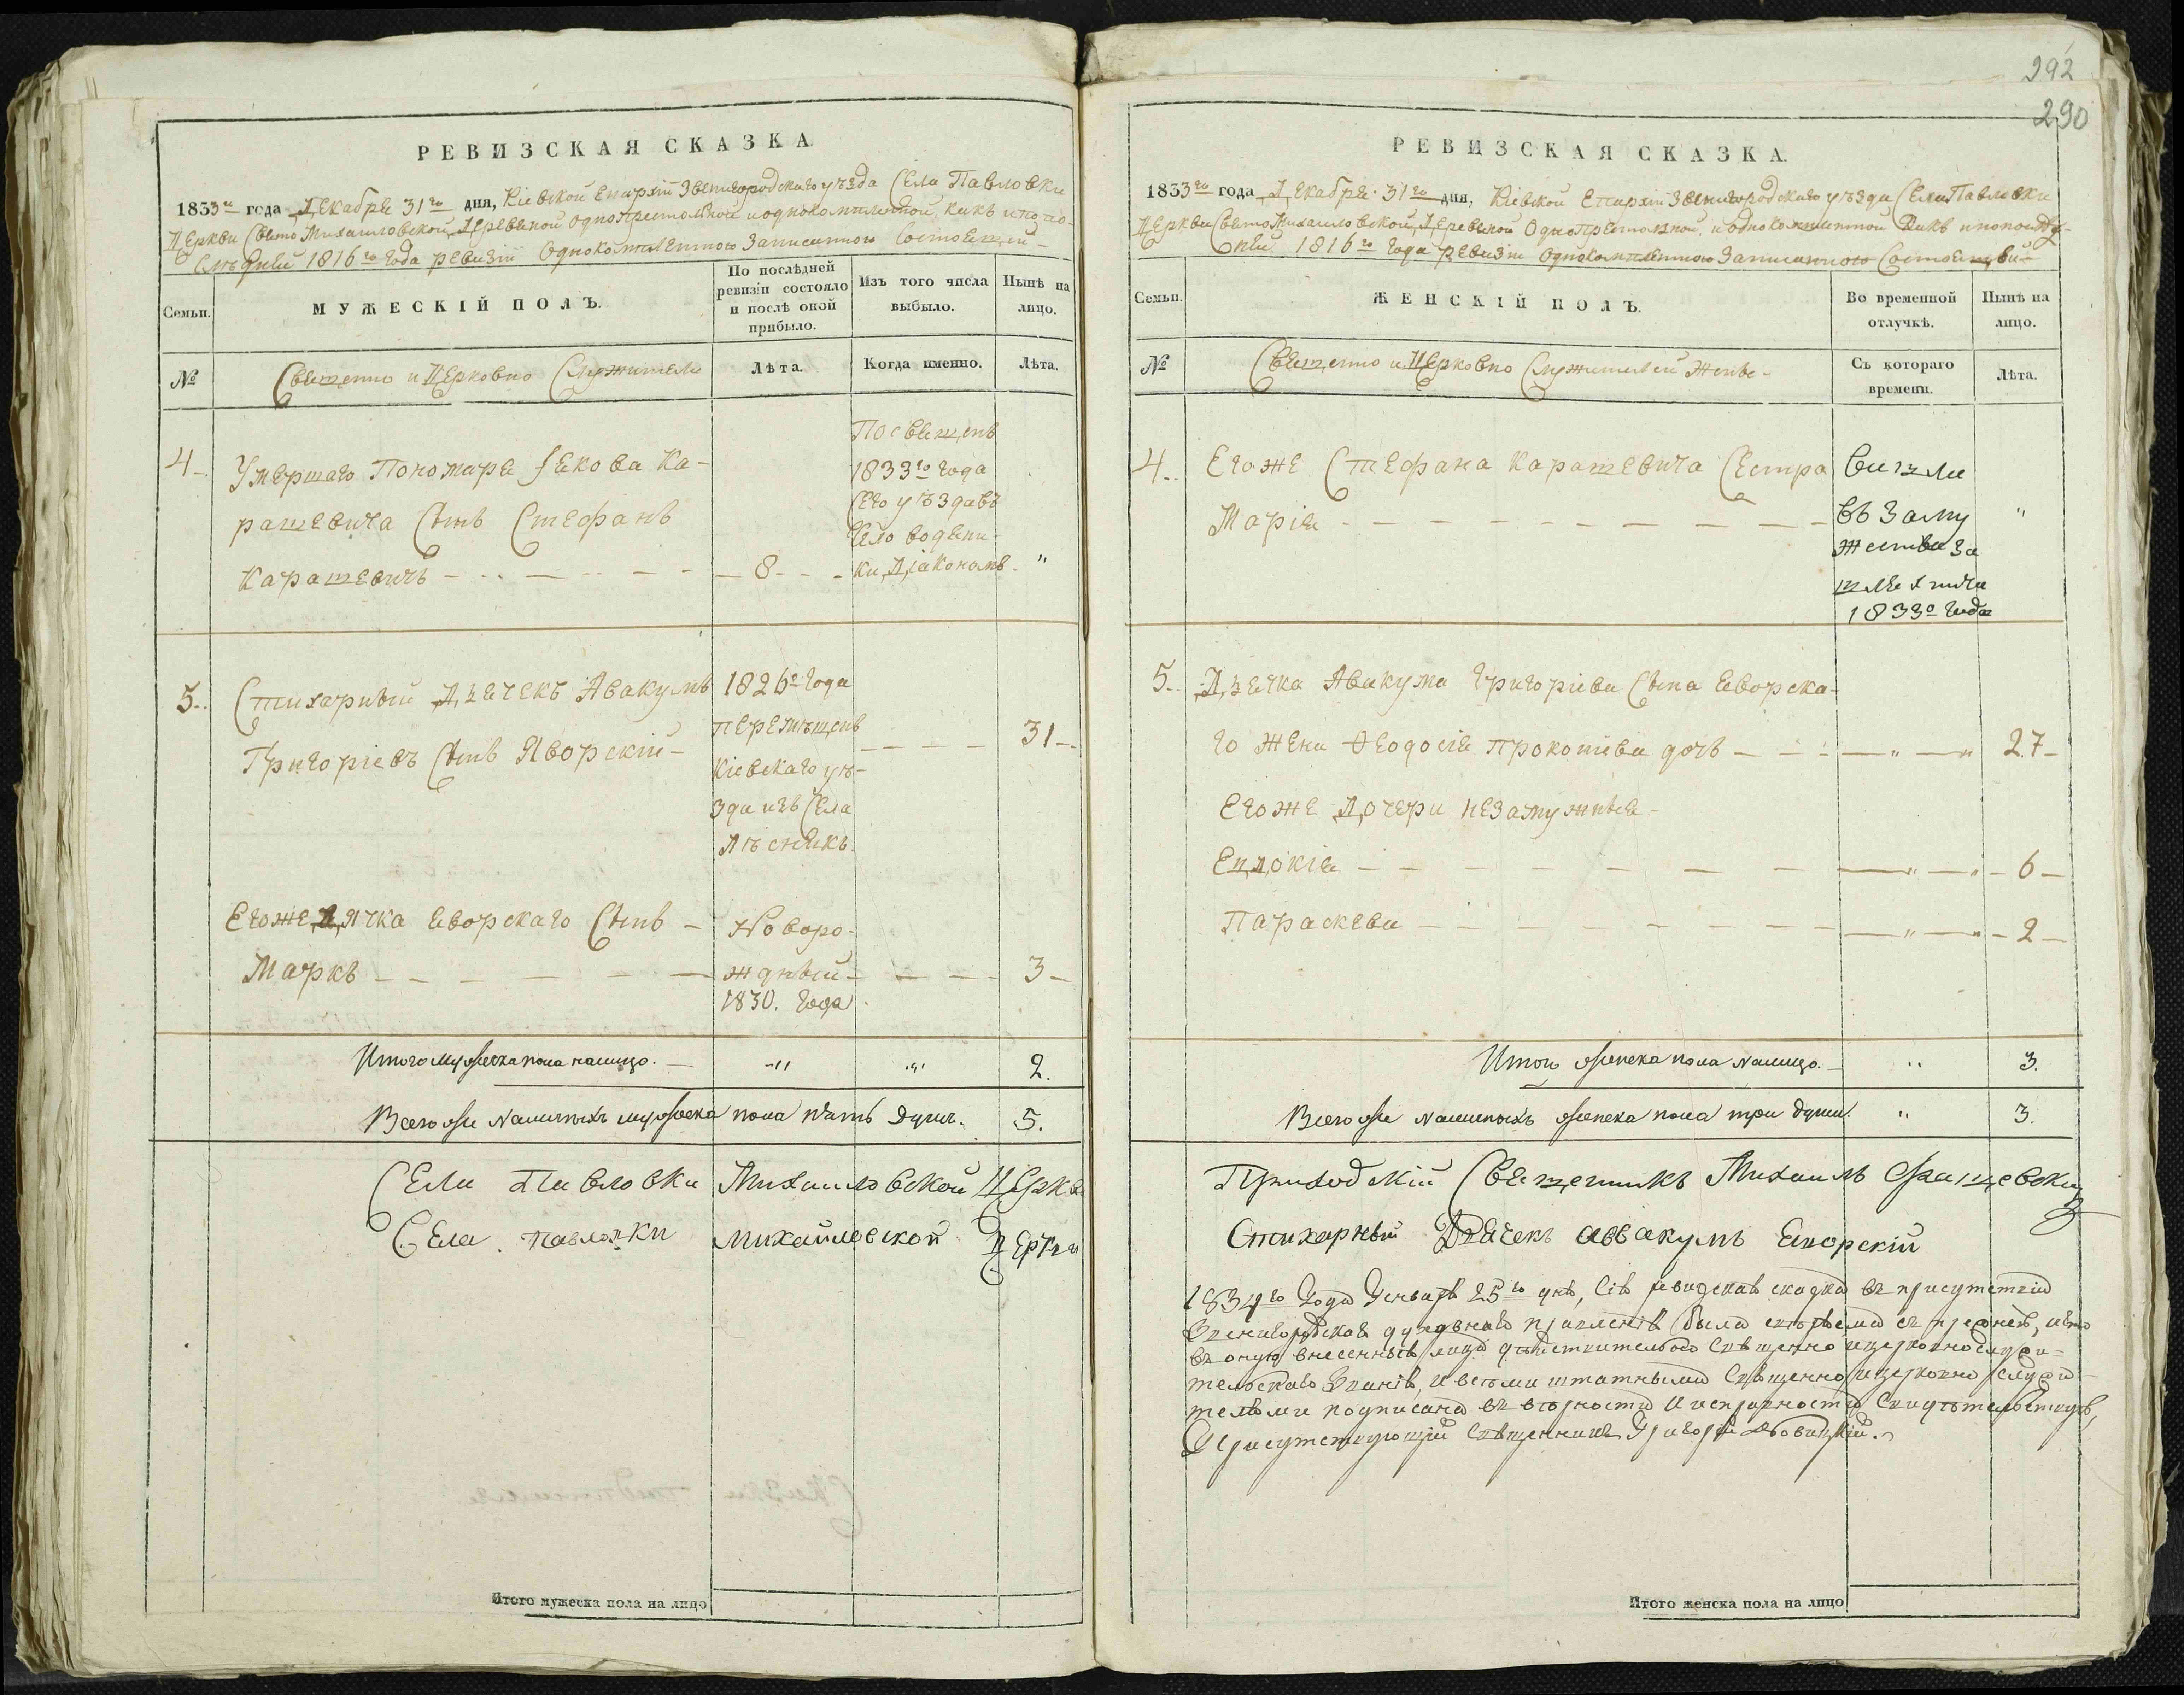 292
290
РЕВИЗСКАЯ СКАЗКА
1833го года Декабря 31го дня, Кіевской Епархіи Звенигородскаго уѣзда Села Павловки
Церкви Свято Михаиловской, Деревяной однопрестолной и однокомплетной, какъ и по по-
слѣдней 1816го Года ревизіи Однокомплетною Записанною Состоящей-
Семьи.
МУЖЕСКІЙ ПОЛЪ.
По послѣдней
ревизіи состояло
и послѣ оной
прибыло.
Изъ того числа
выбыло.
Нынѣ на
лицо.
№
Священно и Церковно Служители
Лѣта.
Когда именно.
Лѣта.
4
Умершаго Пономаря Якова Ка-
рашевича Сынъ Стефанъ
Карашевичъ
8
Посвященъ
1833го Года
Сего уѣзда въ
Село Водяни-
ки Діакономъ
5
Стихарный Дьячекъ Авакумъ
Григоріевъ Сынъ Яворскій
1826го Года
перемѣщенъ
Кіевскаго уѣ-
зда изъ Села
Лѣсникъ
31
Егоже Дячка Яворскаго Сынъ
Маркъ
Новоро-
ждный
1830. Года
3
Итого мужеска пола налицо.
2.
Всего же наличныхъ мужеска пола пять Душъ.
5.
Села Павловки Михаиловской Церкви
Села Павловки михайловской Церкви
Итого мужеска пола на лицо
РЕВИЗСКАЯ СКАЗКА.
1833го года Декабря 31го дня, Кіевской Епархіи Звенигородскаго уѣзда Села Павловки
Церкви Свято Михаиловской, Деревяной Однопрестолной, и однокомплетной Какъ и по послѣд-
ней 1816го Года ревизіи Однокомплетною Записанною Состоящей
Семьи.
ЖЕНСКІЙ ПОЛЪ.
Во временной
отлучкѣ.
Нынѣ на
лицо.
№
Священно и Церковно Служителей Жены
Съ котораго
времени.
Лѣта.
4
Егоже Стефана Карашевича Сестра
Марія
въ Заму
жестве за
1833о Года
5
Дьячка Авакума Григоріева Сына Яворска-
го Жена Ѳеодосія Прокопіева дочь
27
Егоже Дочери незамужные
Евдокія
6
Параскева
2
Итого женска пола налицо.
3.
Всего же наличныхъ женска пола три души.
3.
Приходскій Священникъ Михаилъ
Стихарный Дьячекъ Аввакумъ Яворскій
1834го Года Генваря 25го дня, Сія ревизская сказка въ присутствіи
Звенигородскаго духовнаго правленія была
въ оную внесенныя лица дѣйствительно Священно и церковнослужи-
тельскаго Званія, и всѣми штатными Священно и церковно служи-
телями подписана въ вѣрности и исправности Свидѣтельствую,
Присутствующій Священникъ Григорій
Итого женска пола на лицо